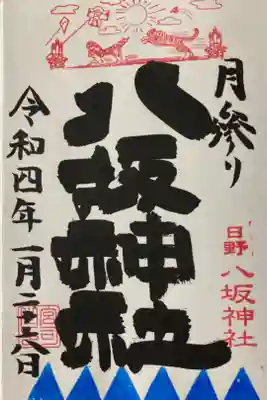 月参り
八坂神社
日野
八坂神社
令和四年一月二十六日